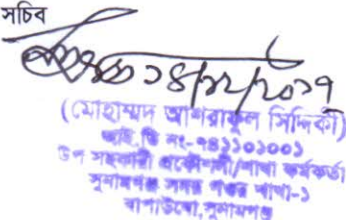 সচিব
১৪/১২/২০১৭
(মোহাম্মদ আশরাফুল সিদ্দিকী)
আই,ডি নং-৭৪১১০১০০১
উপ সহকারী প্রকৌশলী/শাখা কর্মকর্তা
সুনামগঞ্জ সদর পওর শাখা-১
বাপাউবো, সুনামগঞ্জ